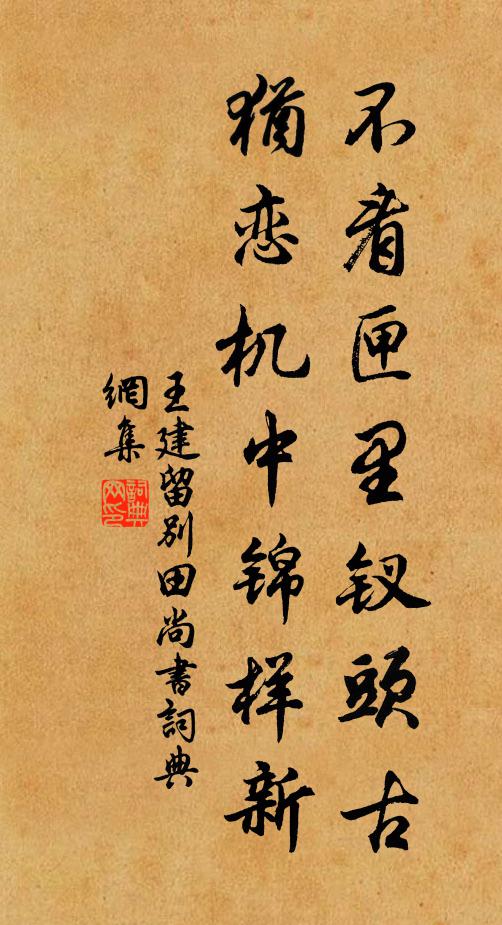 不看匣里钗頭古
猶恋机中锦样新
王建留别田尚書詞典
網集
詞典
网印